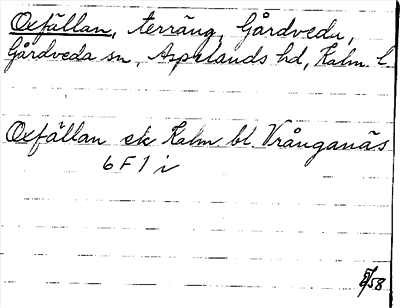 Oxfällan, terräng, Gårdveda,
Gårdveda sn, Aspelands hd, Kalm. l.
Oxfällan ek Kalm bl. Vrånganäs
6 F 1 i